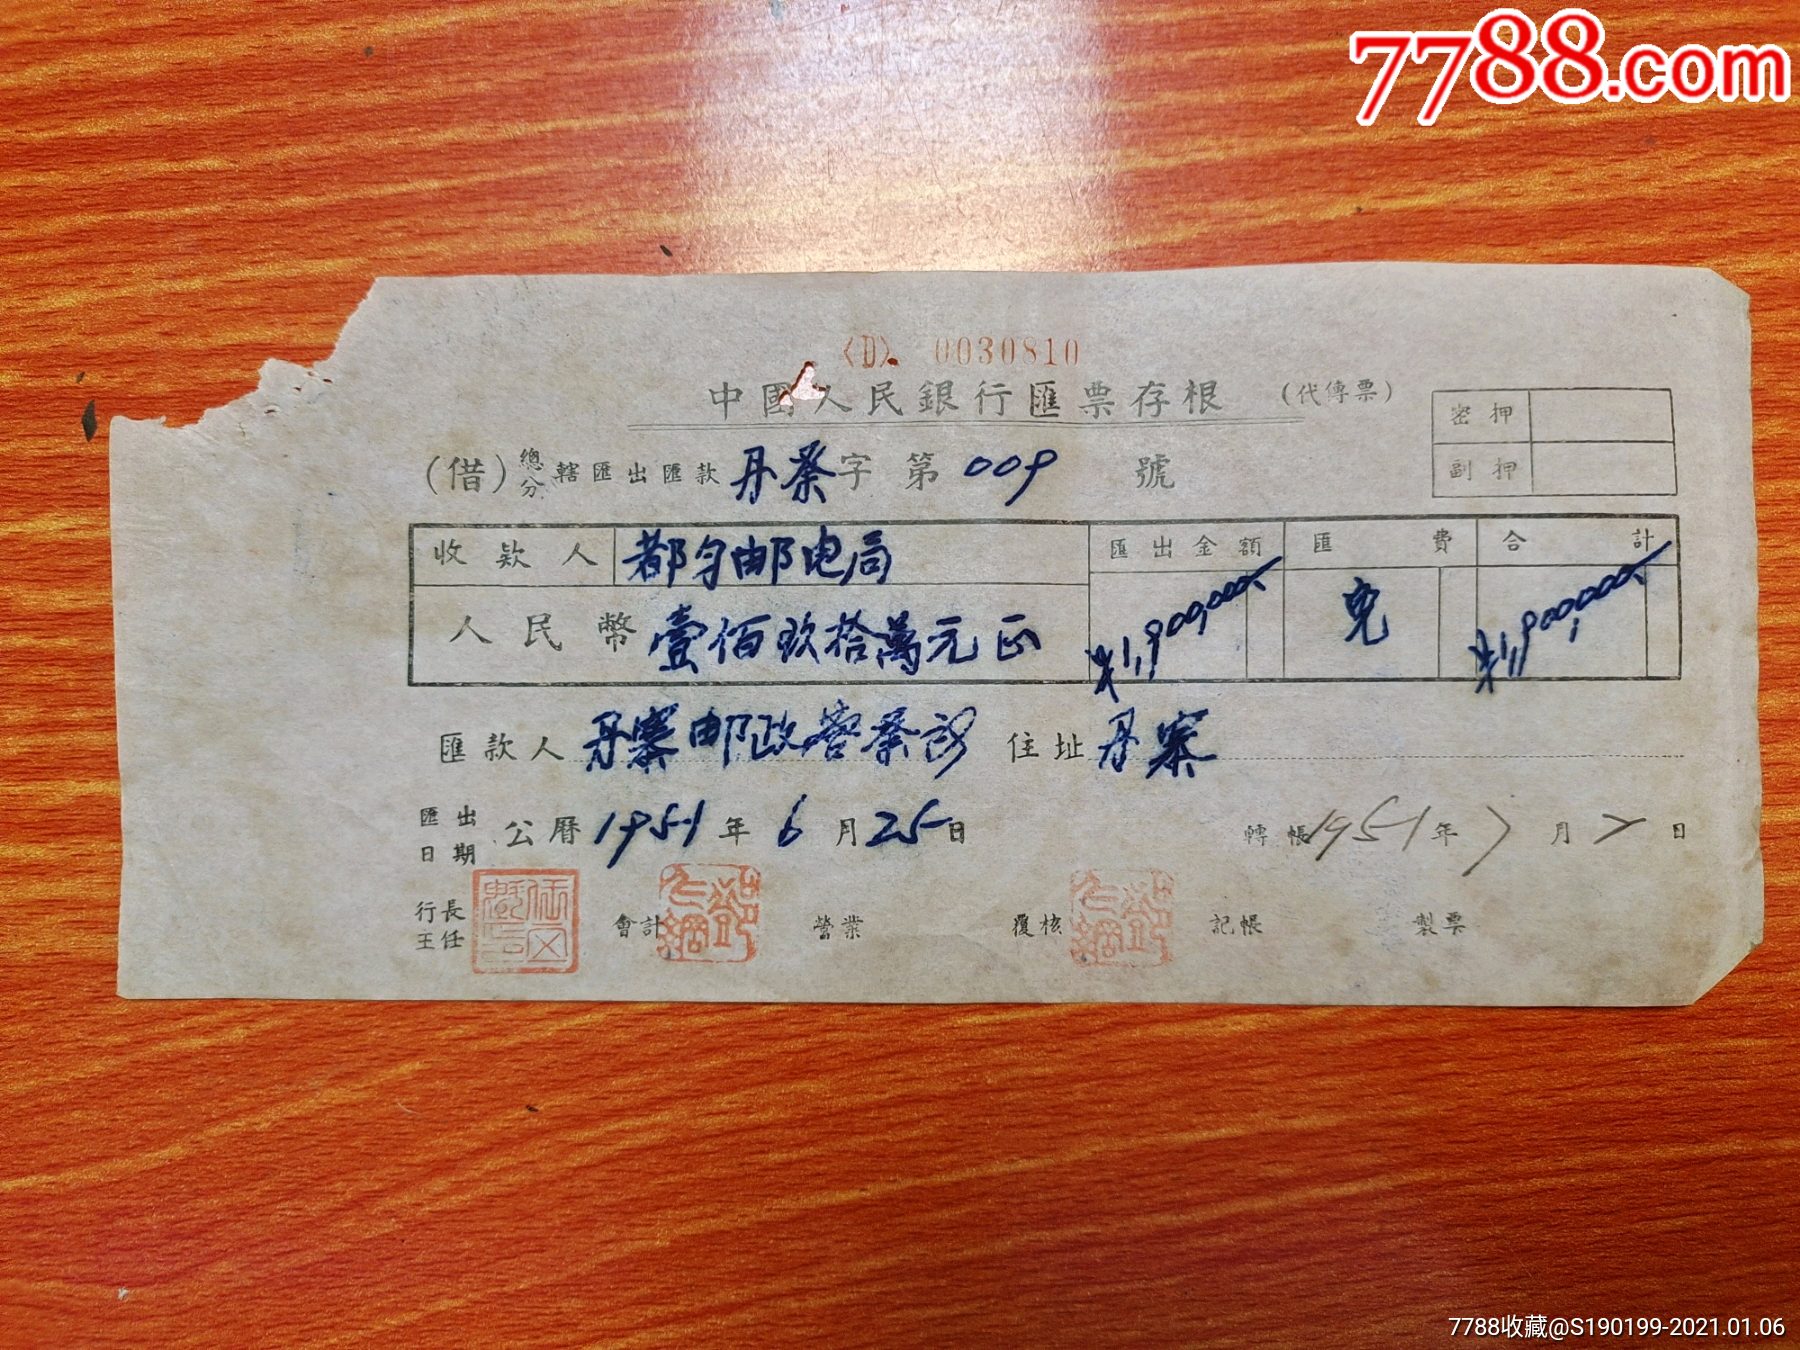 7788.com
(D). 0030810
中國人民銀行匯票存根 (代傳票)
密押
副押
(借) 總分 轄匯出匯款 丹寨字 第 009 號
收款人 都匀邮电局 匯出金額 匯費 合計
人民幣 壹佰玖拾萬元正 ¥1,900,000.- 免 ¥1,900,000.-
匯款人 丹寨邮政 住址 丹寨
匯出日期 公曆 1951 年 6 月 25 日 轉帳 1951 年 7 月 2 日
行長 主任 會計 營業 覆核 記帳 製票
7788收藏@S190199-2021.01.06